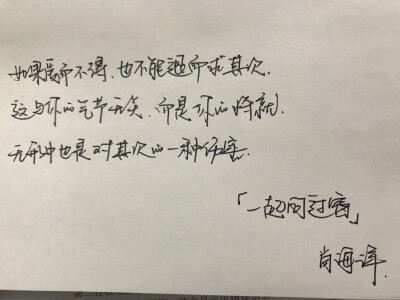 如果爱而不得，也不能退而求其次．
这与你的气节无关，而是你的将就．
无形中也是对其次的一种伤害．
「一起的过客」
肖海洋．